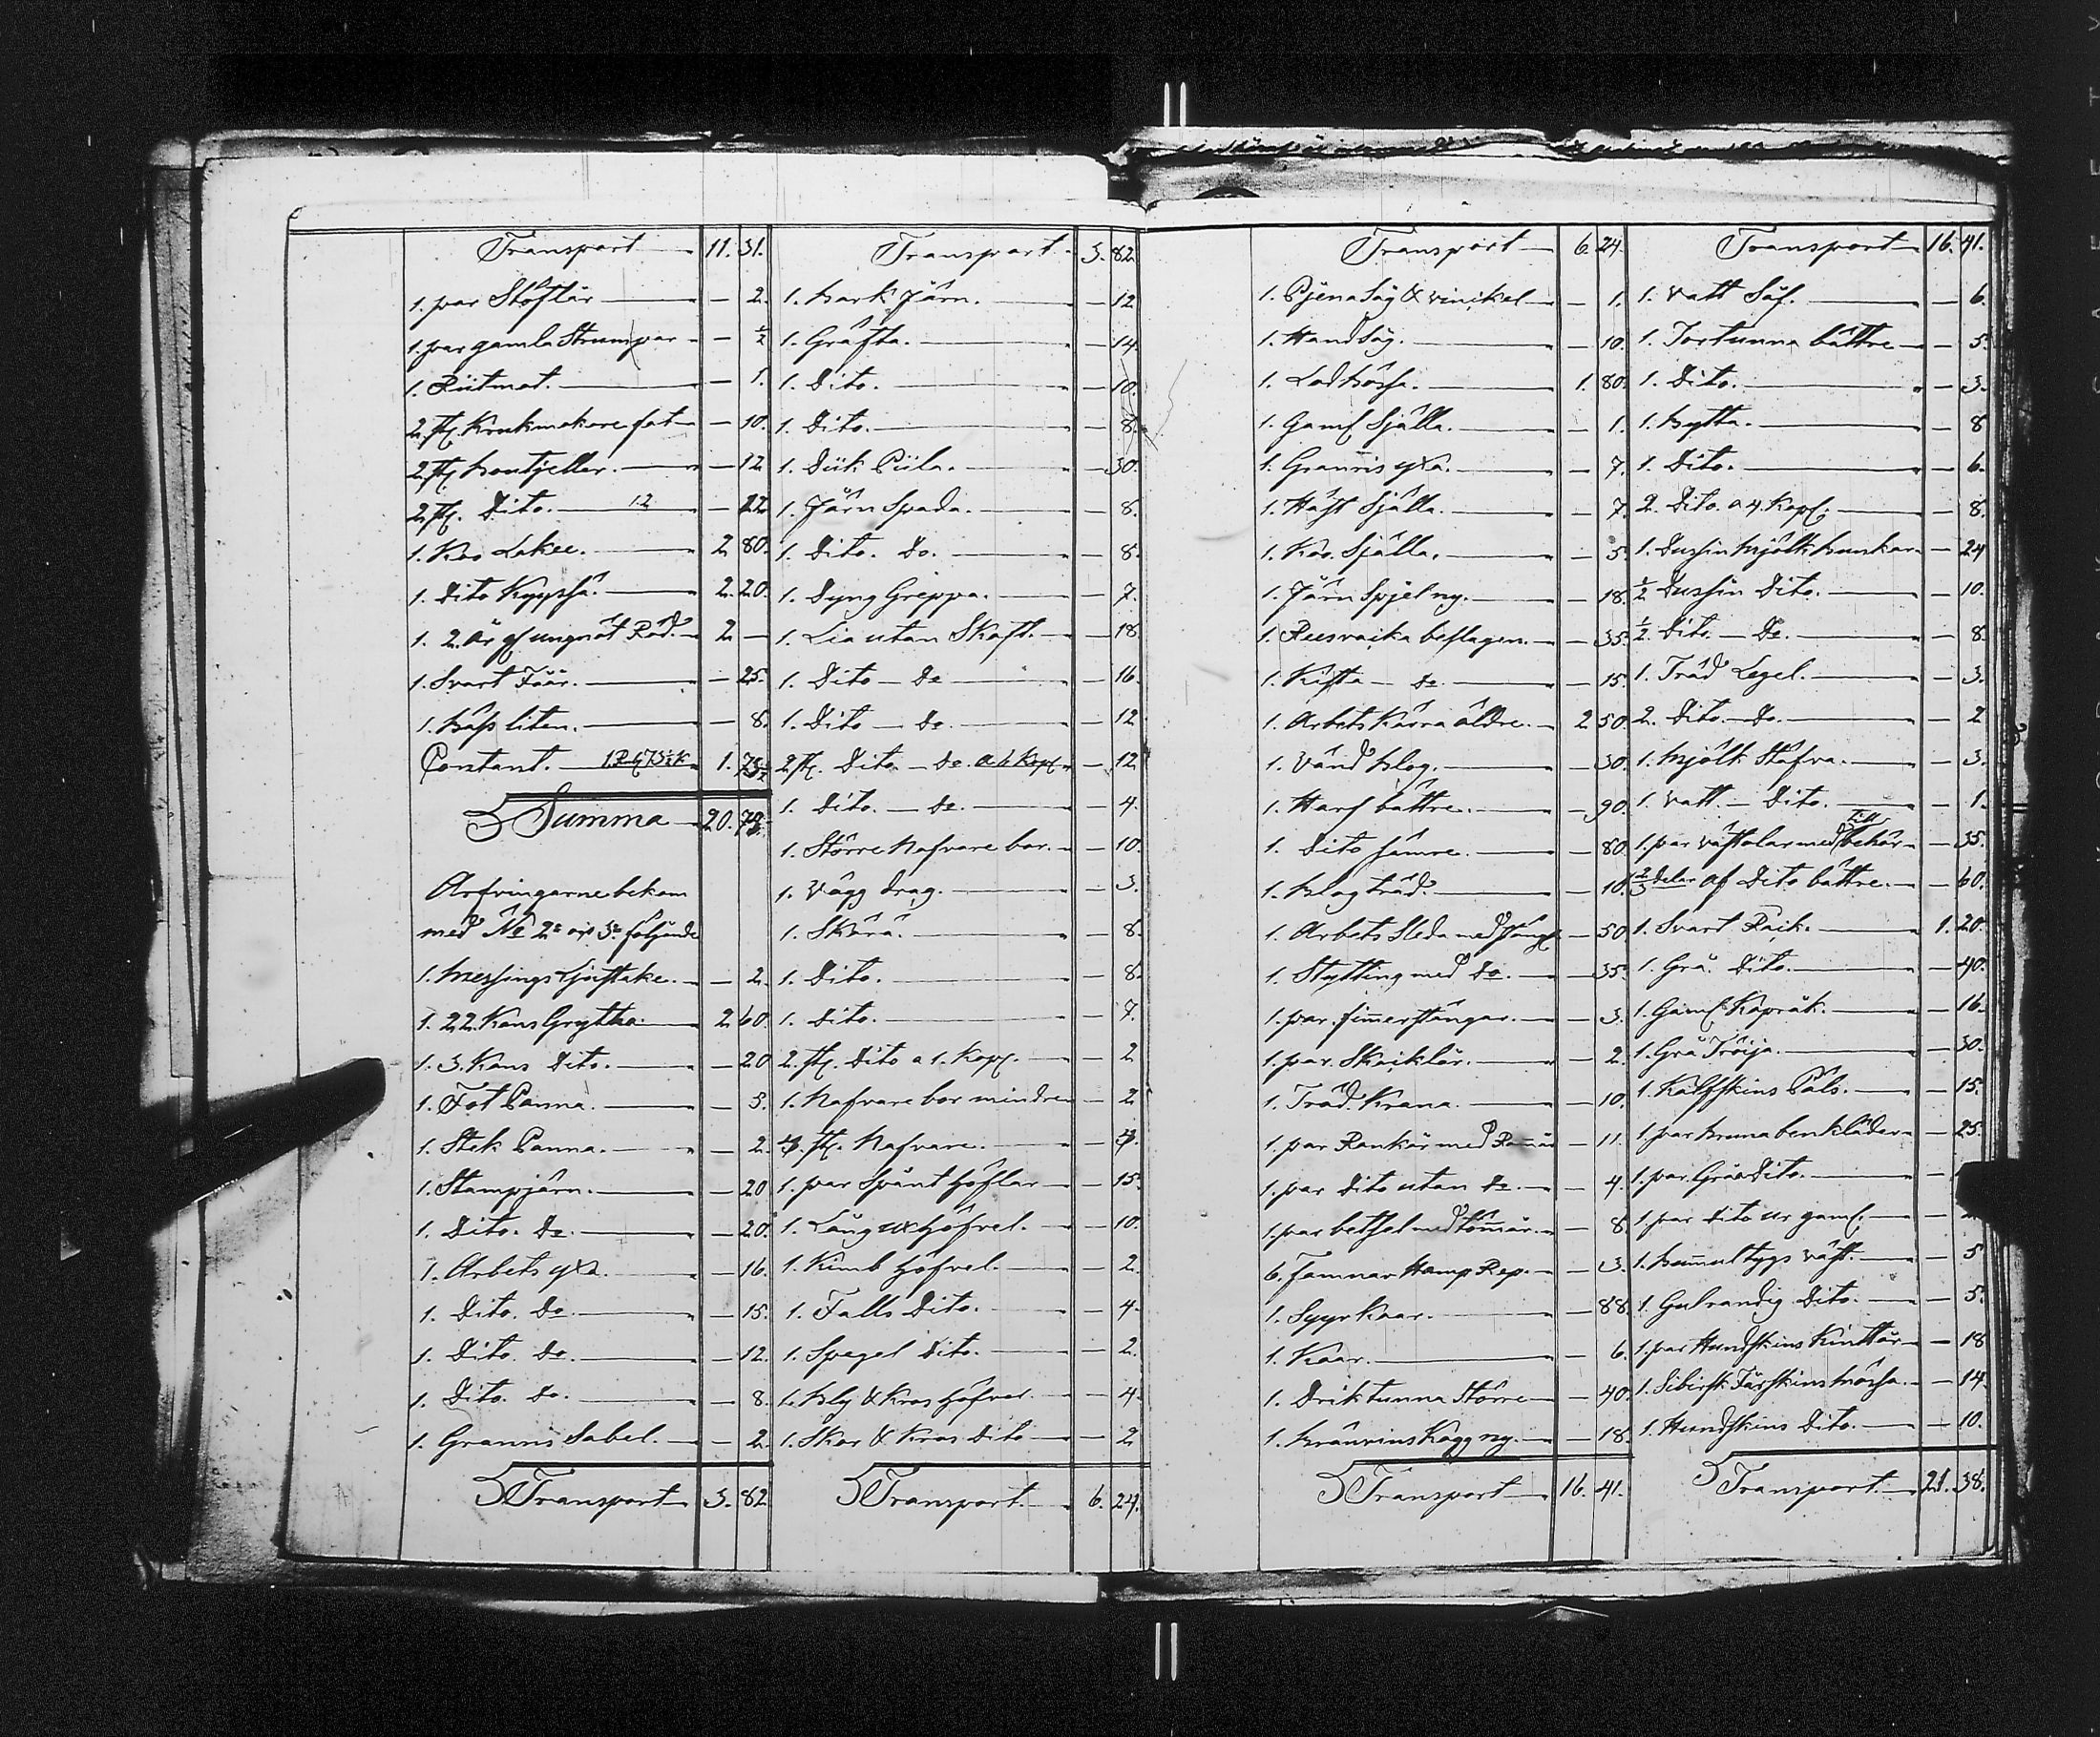 Transport 11. 31.
1. par Stöflar — 2.
1. par gamla Strumpor — ½
1. Riitmot. — 1.
2. st. Krukmakare fat — 10.
2. st. Bontjeller. — 12
2. st. Dito. 12 — 12
1. Koo Lakee. 2. 80.
1. Dito Kyyssä. 2. 20.
1. 2. år gl. ungnöt Röd. 2. —
1. Svart Fåår. — 25.
1. Båss liten. — 8.
Contant. 1 R 73½ K 1. 73½
Summa 20. 73.
Arfvingarne bekom
med No 2 följande
1. Messings Ljustake. — 2.
1. 22. Kans Grytta. 2. 60
1. 3. Kans Dito. — 20
1. Fot Panna. — 5.
1. Stek Panna. — 2.
1. Stampjärn. — 20
1. Dito. Do. — 20.
1. Arbets yxa. — 16.
1. Dito. Do — 15.
1. Dito. Do. — 12.
1. Dito. Do. — 8.
1. Granris Sabel. — 2.
Transport 3. 82
Transport 3. 82.
1. Bark Järn. — 12
1. Gräfta. — 14.
1. Dito. — 10.
1. Dito. — 8.
1. Dük Piila. — 30.
1. Järn Spada. — 8.
1. Dito. Do. — 8.
1. Dyng Greppa. — 7.
1. Lia utan Skaft. — 18.
1. Dito — Do — 16.
1. Dito — Do. — 12
2. st. Dito — Do. a 6 Kop. — 12
1. Dito. — Do. — 4.
1. Större Nafvare bor. — 10.
1. Vägg drag. — 3.
1. Skärä. — 8.
1. Dito. — 8.
1. Dito. — 7.
2. st. Dito a 1. Kop. — 2
1. Nafvare bor mindre — 2.
st. Nafvare.
1. par Spånt Höflar — 15.
1. Lång ux höfvel. — 10.
1. Kimb höfvel. — 2.
1. Falls Dito. — 4.
1. Spegel Dito. — 2.
1. Bly & Kros höfvel — 4.
1. Skor & Kros Dito — 2
Transport. 6. 24.
Transport 6. 24.
1. Pjena Såg & vinikel — 1.
1. Hand Såg. — 10.
1. Lodbössa. 1. 80.
1. Gaml Själla. — 1.
1. Granris yxa. — 7.
1. Häst Själla. — 7.
1. Koo. Själla. — 5.
1. Järn Spjel ny. — 18.
1. Reesvaika beslagen. — 35.
1. Kista — Do. — 15.
1. Arbets Kärra äldre. 2. 50.
1. Vänd Plog. — 30.
1. Harf bättre. — 90.
1. Dito sämre. — 80.
1. Plog träd. — 10.
1. Arbets Släda med stång — 50.
1. Stytting med Do. — 35.
1. par. simmerstångar. — 3.
1. par. Skaiklar. — 2.
1. Träd. Krana. — 10.
1. par Rankär med Remär — 11.
1. par Dito utan Do. — 4.
1. par betsel med tömmär. — 8.
6. famnar Hamp Rep. — 3.
1. Syyr Kaar. — 88.
1. Kaar. — 6.
1. Drik tunna Större — 40.
1. Bränvins Kagg ny. — 18.
Transport 16. 41.
Transport 16. 41.
1. vatt Såf. — 6.
1. Tortunna bättre — 5.
1. Dito. — 3.
1. Bytta. — 8
1. Dito. — 6.
2. Dito. a 4. Kop. — 8.
1. Dussin Mjölk bunkar — 24
½ Dussin Dito. — 10.
½. Dito. — Do. — 8.
1. Träd Legel. — 3.
2. Dito. Do. — 2
1. Mjölk Stäfva. — 3.
1. vatt. — Dito. — 1.
1. par väfstolar med till behör — 35.
2/3 delar af Dito bättre. — 60.
1. Svart Råck. 1. 20.
1. Grå. Dito. — 40.
1. Gaml. Kapråk. — 16.
1. Grå Tröija. — 30.
1. Kalfskins Päls. — 15.
1. par bruna benkläder — 25.
1. par. Gråa Dito. —
1. par Dito ur gaml. —
1. Bomultygs väst. — 5
1. Gulrandig Dito. — 5.
1. par Hundskins Kinttår — 18
1. Sibirsk Fårskins mössa. — 14
1. Hundskins Dito. — 10.
Transport. 21. 38.